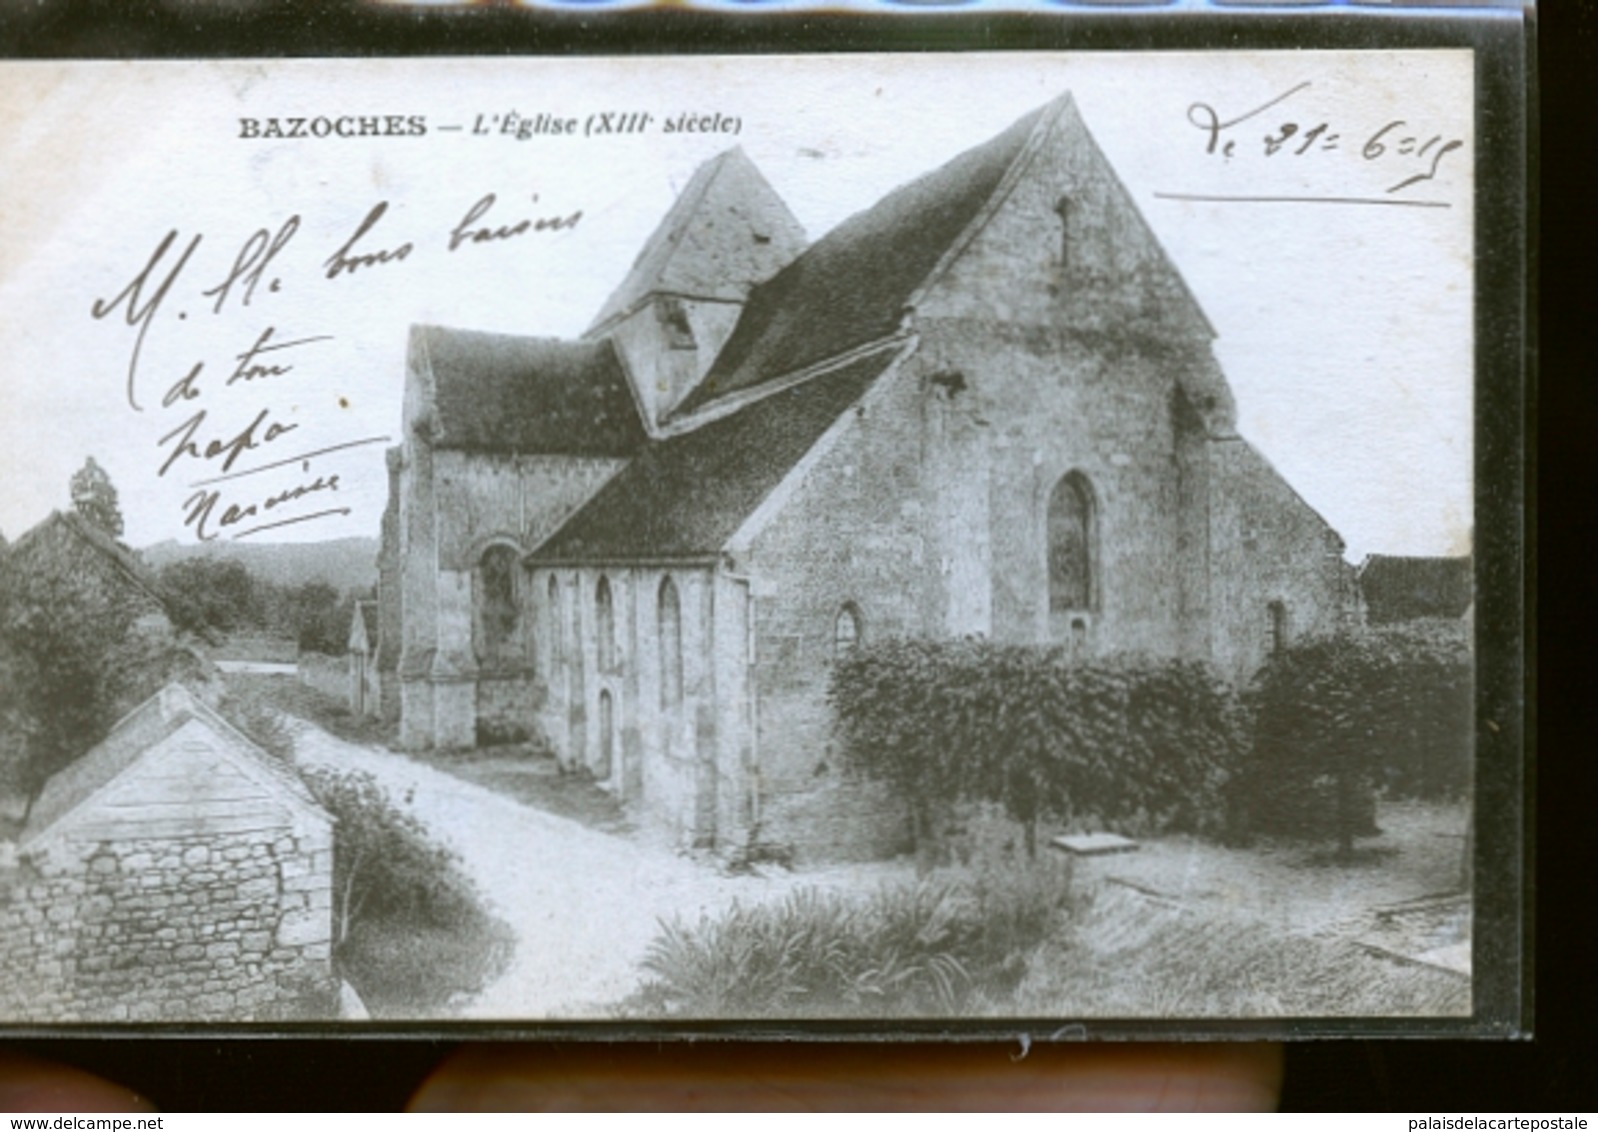 BAZOCHES — L'Église (XIIIe siècle)
Le 21 = 6 = 15
Mille bons baisers
de ton
papa
Narcisse
www.delcampe.net
palaisdelacartepostale